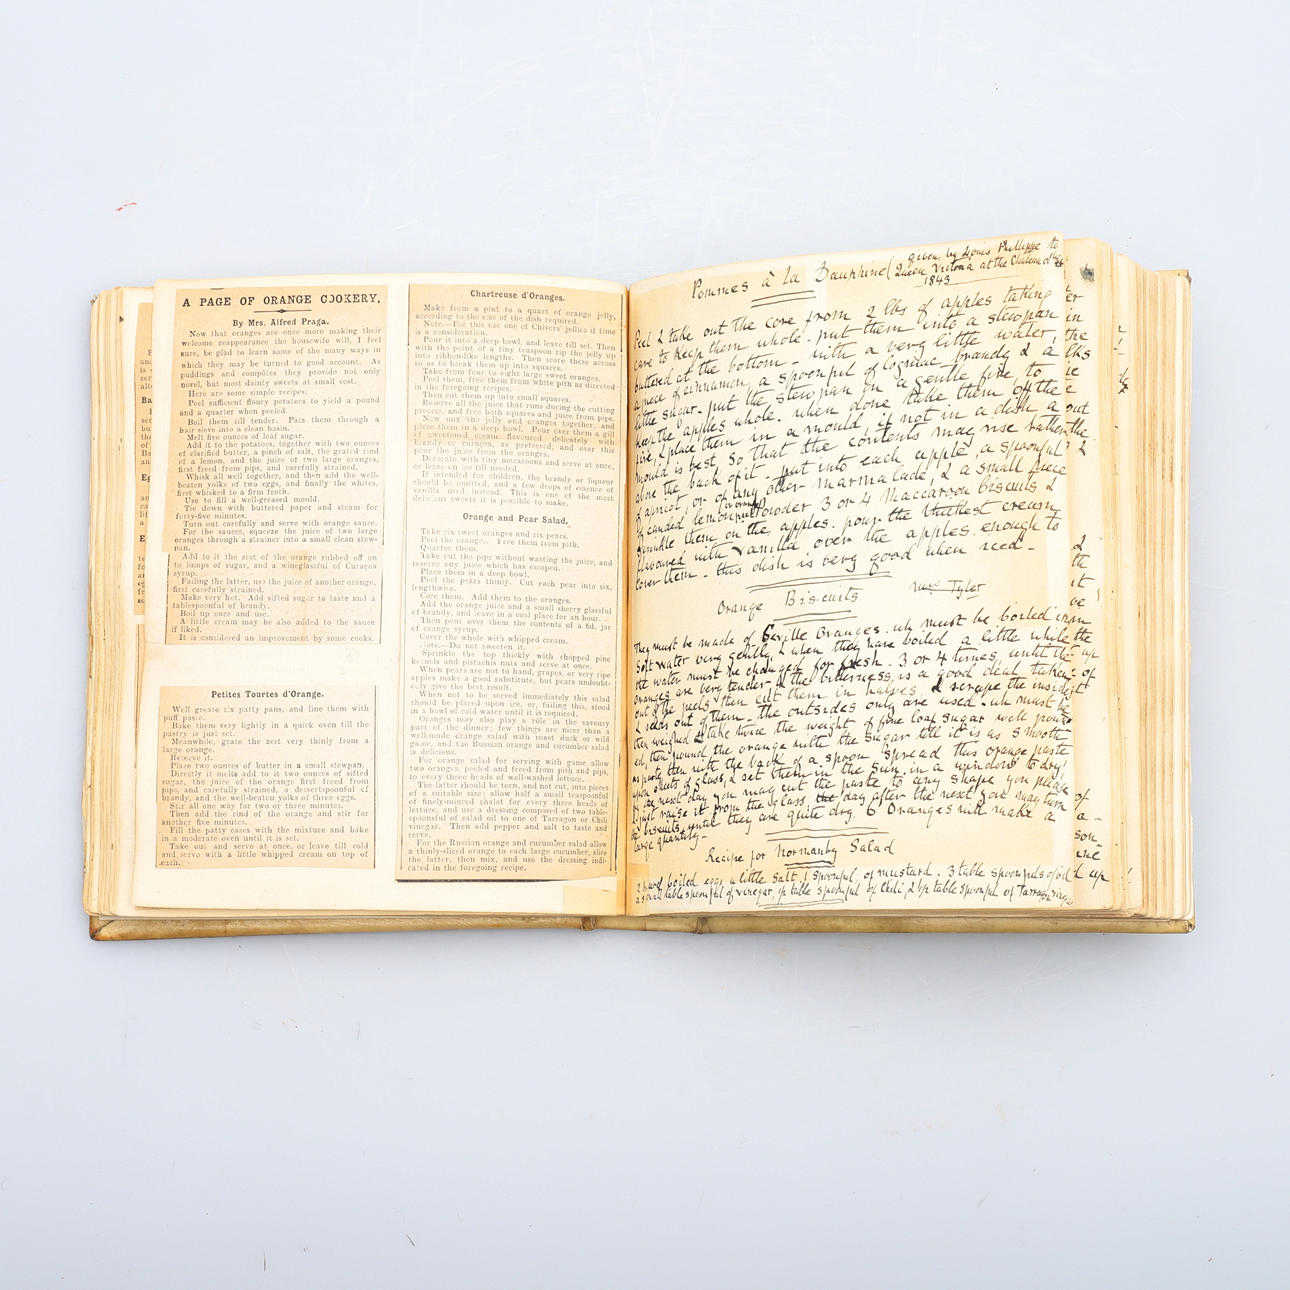 A PAGE OF ORANGE COOKERY.
By Mrs. Alfred Praga.
Now that oranges are once more making their
welcome reappearance the housewife will, I feel
sure, be glad to learn some of the many ways in
which they may be turned to good account. As
puddings and compôtes they provide not only
novel, but most dainty sweets at small cost.
Here are some simple recipes.
Peel sufficient floury potatoes to yield a pound
and a quarter when peeled.
Boil them till tender. Pass them through a
hair sieve into a clean basin.
Melt five ounces of loaf sugar.
Add it to the potatoes, together with two ounces
of clarified butter, a pinch of salt, the grated rind
of a lemon, and the juice of two large oranges,
first freed from pips, and carefully strained.
Whisk all well together, and then add the well-
beaten yolks of two eggs, and finally the whites,
first whisked to a firm froth.
Use to fill a well-greased mould.
Tie down with buttered paper and steam for
forty-five minutes.
Turn out carefully and serve with orange sauce.
For the sauce, squeeze the juice of two large
oranges through a strainer into a small clean stew-
pan.
Add to it the zest of the orange rubbed off on
to lumps of sugar, and a wineglassful of Curaçoa
syrup.
Failing the latter, use the juice of another orange,
first carefully strained.
Make very hot. Add sifted sugar to taste and a
tablespoonful of brandy.
Boil up once and use.
A little cream may be also added to the sauce
if liked.
It is considered an improvement by some cooks.
Petites Tourtes d'Orange.
Well grease six patty pans, and line them with
puff paste.
Bake them very lightly in a quick oven till the
pastry is just set.
Meanwhile, grate the zest very thinly from a
large orange.
Reserve it.
Place two ounces of butter in a small stewpan.
Directly it melts add to it two ounces of sifted
sugar, the juice of the orange first freed from
pips, and carefully strained, a dessertspoonful of
brandy, and the well-beaten yolks of three eggs.
Stir all one way for two or three minutes.
Then add the rind of the orange and stir for
another five minutes.
Fill the patty cases with the mixture and bake
in a moderate oven until it is set.
Take out and serve at once, or leave till cold
and serve with a little whipped cream on top of
each.
Chartreuse d'Oranges.
Make from a pint to a quart of orange jelly,
according to the size of the dish required.
Note.—For this use one of Chivers' jellies if time
is a consideration.
Pour it into a deep bowl, and leave till set. Then
with the point of a tiny teaspoon rip the jelly up
into ribbon-like lengths. Then score these across
so as to break them up into squares.
Take from four to eight large sweet oranges.
Peel them, free them from white pith as directed
in the foregoing recipes.
Then cut them up into small squares.
Reserve all the juice that runs during the cutting
process, and free both squares and juice from pips.
Now mix the jelly and oranges together, and
place them in a deep bowl. Pour over them a gill
of sweetened cream flavoured delicately with
brandy or curaçoa, as preferred, and over this
pour the juice from the oranges.
Decorate with tiny macaroons and serve at once,
or leave on ice till needed.
If intended for children, the brandy or liqueur
should be omitted, and a few drops of essence of
vanilla used instead. This is one of the most
delicious sweets it is possible to make.
Orange and Pear Salad.
Take six sweet oranges and six pears.
Peel the oranges. Free them from pith.
Quarter them.
Take out the pips without wasting the juice, and
reserve any juice which has escaped.
Place them in a deep bowl.
Peel the pears thinly. Cut each pear into six,
lengthwise.
Core them. Add them to the oranges.
Add the orange juice and a small sherry glassful
of brandy, and leave in a cool place for an hour.
Then pour over them the contents of a 6d. jar
of orange syrup.
Cover the whole with whipped cream.
Note.—Do not sweeten it.
Sprinkle the top thickly with chopped pine
kernels and pistachio nuts and serve at once.
When pears are not to hand, grapes, or very ripe
apples make a good substitute, but pears undoubt-
edly give the best result.
When not to be served immediately this salad
should be placed upon ice, or, failing this, stood
in a bowl of cold water until it is required.
Oranges may also play a rôle in the savoury
part of the dinner; few things are nicer than a
well-made orange salad with roast duck or wild
game, and the Russian orange and cucumber salad
is delicious.
For orange salad for serving with game allow
two oranges, peeled and freed from pith and pips,
to every three heads of well-washed lettuce.
The latter should be torn, and not cut, into pieces
of a suitable size; allow half a small teaspoonful
of finely-minced shalot for every three heads of
lettuce, and use a dressing composed of two table-
spoonsful of salad oil to one of Tarragon or Chili
vinegar. Then add pepper and salt to taste and
serve.
For the Russian orange and cucumber salad allow
a thinly-sliced orange to each large cucumber, slice
the latter, then mix, and use the dressing indi-
cated in the foregoing recipe.
Pommes à la Dauphine (given by Louis Philippe to
Queen Victoria at the Chateau d'Eu
1843
Peel & take out the core from 2 lbs of apples taking
care to keep them whole. put them into a stewpan
buttered at the bottom with a very little water,
a piece of cinnamon, a spoonful of Cognac brandy & a
little sugar. put the stewpan on a gentle fire to
keep the apples whole. when done take them off the
fire, & place them in a mould, if not in a dish a
mould is best so that the contents may rise rather
above the back of it. put into each apple, a spoonful
of apricot, or of any other marmalade, & a small piece
of candied lemon peel (or orange) Powder 3 or 4 Maccaroon biscuits &
sprinkle them on the apples. pour the thickest cream
flavoured with Vanilla over the apples, enough to
cover them. this dish is very good when iced.
Orange Biscuits Miss Tyler
They must be made of Seville Oranges. wh must be boiled in
soft water very gently & when they have boiled a little while
the water must be changed for fresh. 3 or 4 times, until the
oranges are very tender & the bitterness is a good deal taken
out of the peels then cut them in halves & scrape the insides
& seeds out of them. the outsides only are used. wh must be
then weighed & take twice the weight of fine loaf sugar well pound
ed, then pound the orange with the sugar till it is as smooth
as paste, then with the back of a spoon spread this orange paste
upon sheets of glass, & set them in the sun, in a window to dry,
the next day you may cut the paste to any shape you please
& just raise it from the glass, the day after the next you may turn
the biscuits, until they are quite dry. 6 Oranges will make a
large quantity.
Recipe for Normanby Salad
2 hard boiled eggs a little salt, 1 spoonful of mustard. 3 table spoonfuls of oil
a small table spoonful of vinegar, ½ table spoonful of Chili, & ½ table spoonful of Tarragon vinegar